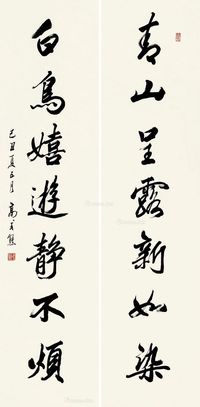 青山呈露新如染
白鳥嬉遊靜不煩
己丑夏五月 高式熊